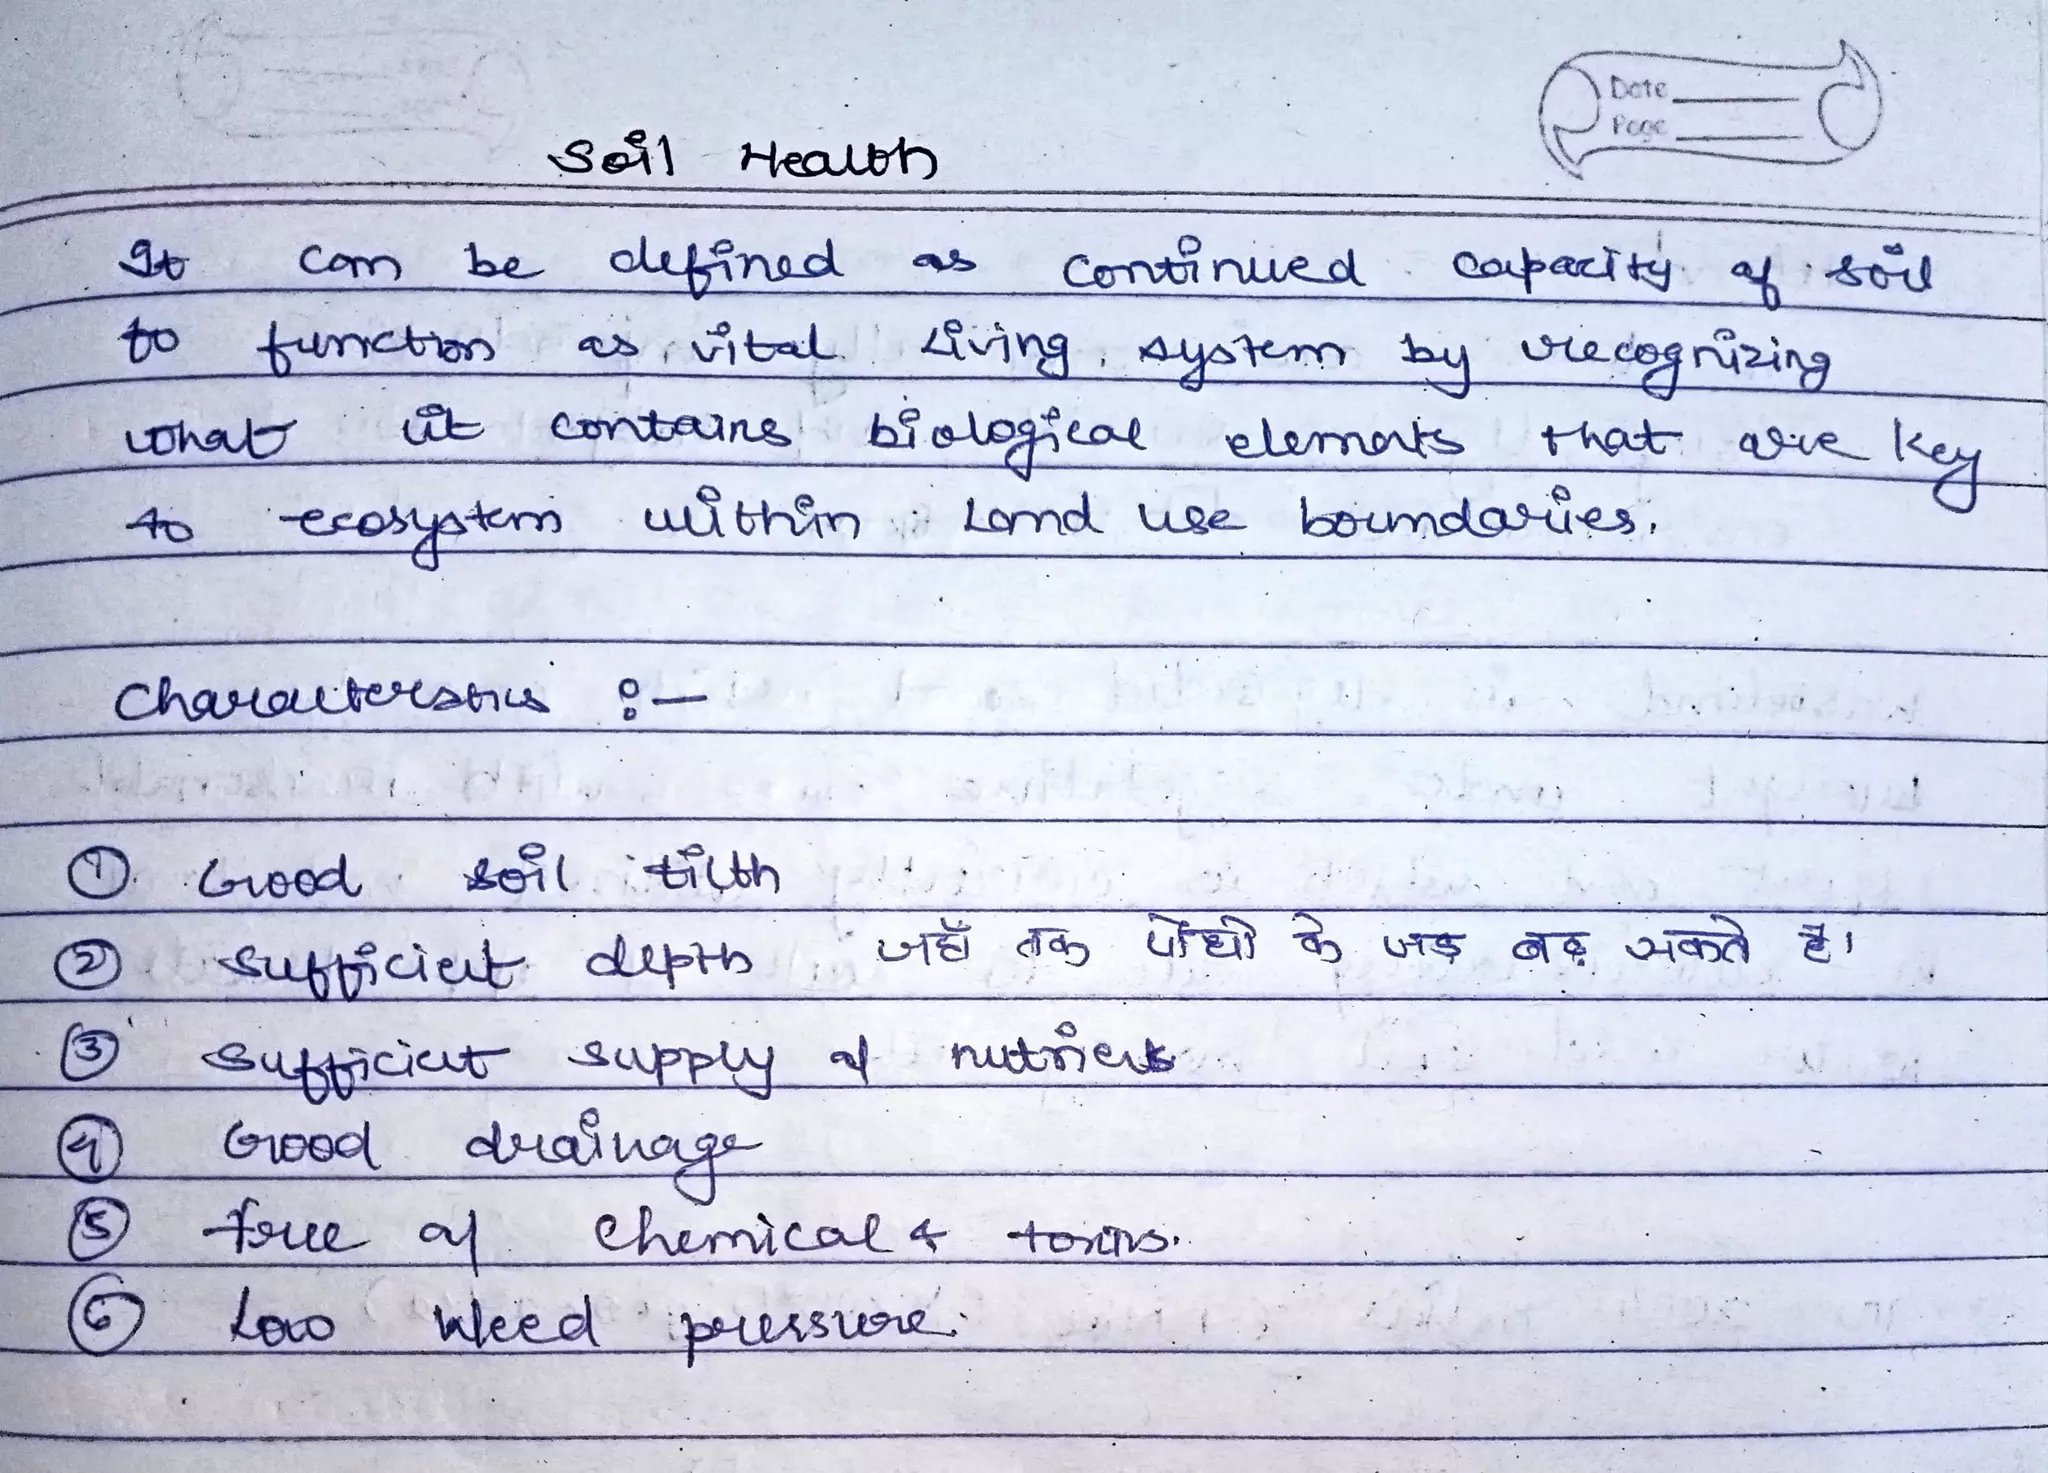 Date
Page
Soil Health
It can be defined as continued capacity of soil
to function as vital living system by recognizing
what it contains biological elements that are key
to ecosystem within Land use boundaries.
Characterstics :-
① Good soil tilth
② Sufficient depth जहाँ तक पौधों के जड़ बढ़ सकते है।
③ Sufficient supply of nutrients
④ Good drainage
⑤ free of chemical & toxins.
⑥ Low weed pressure.